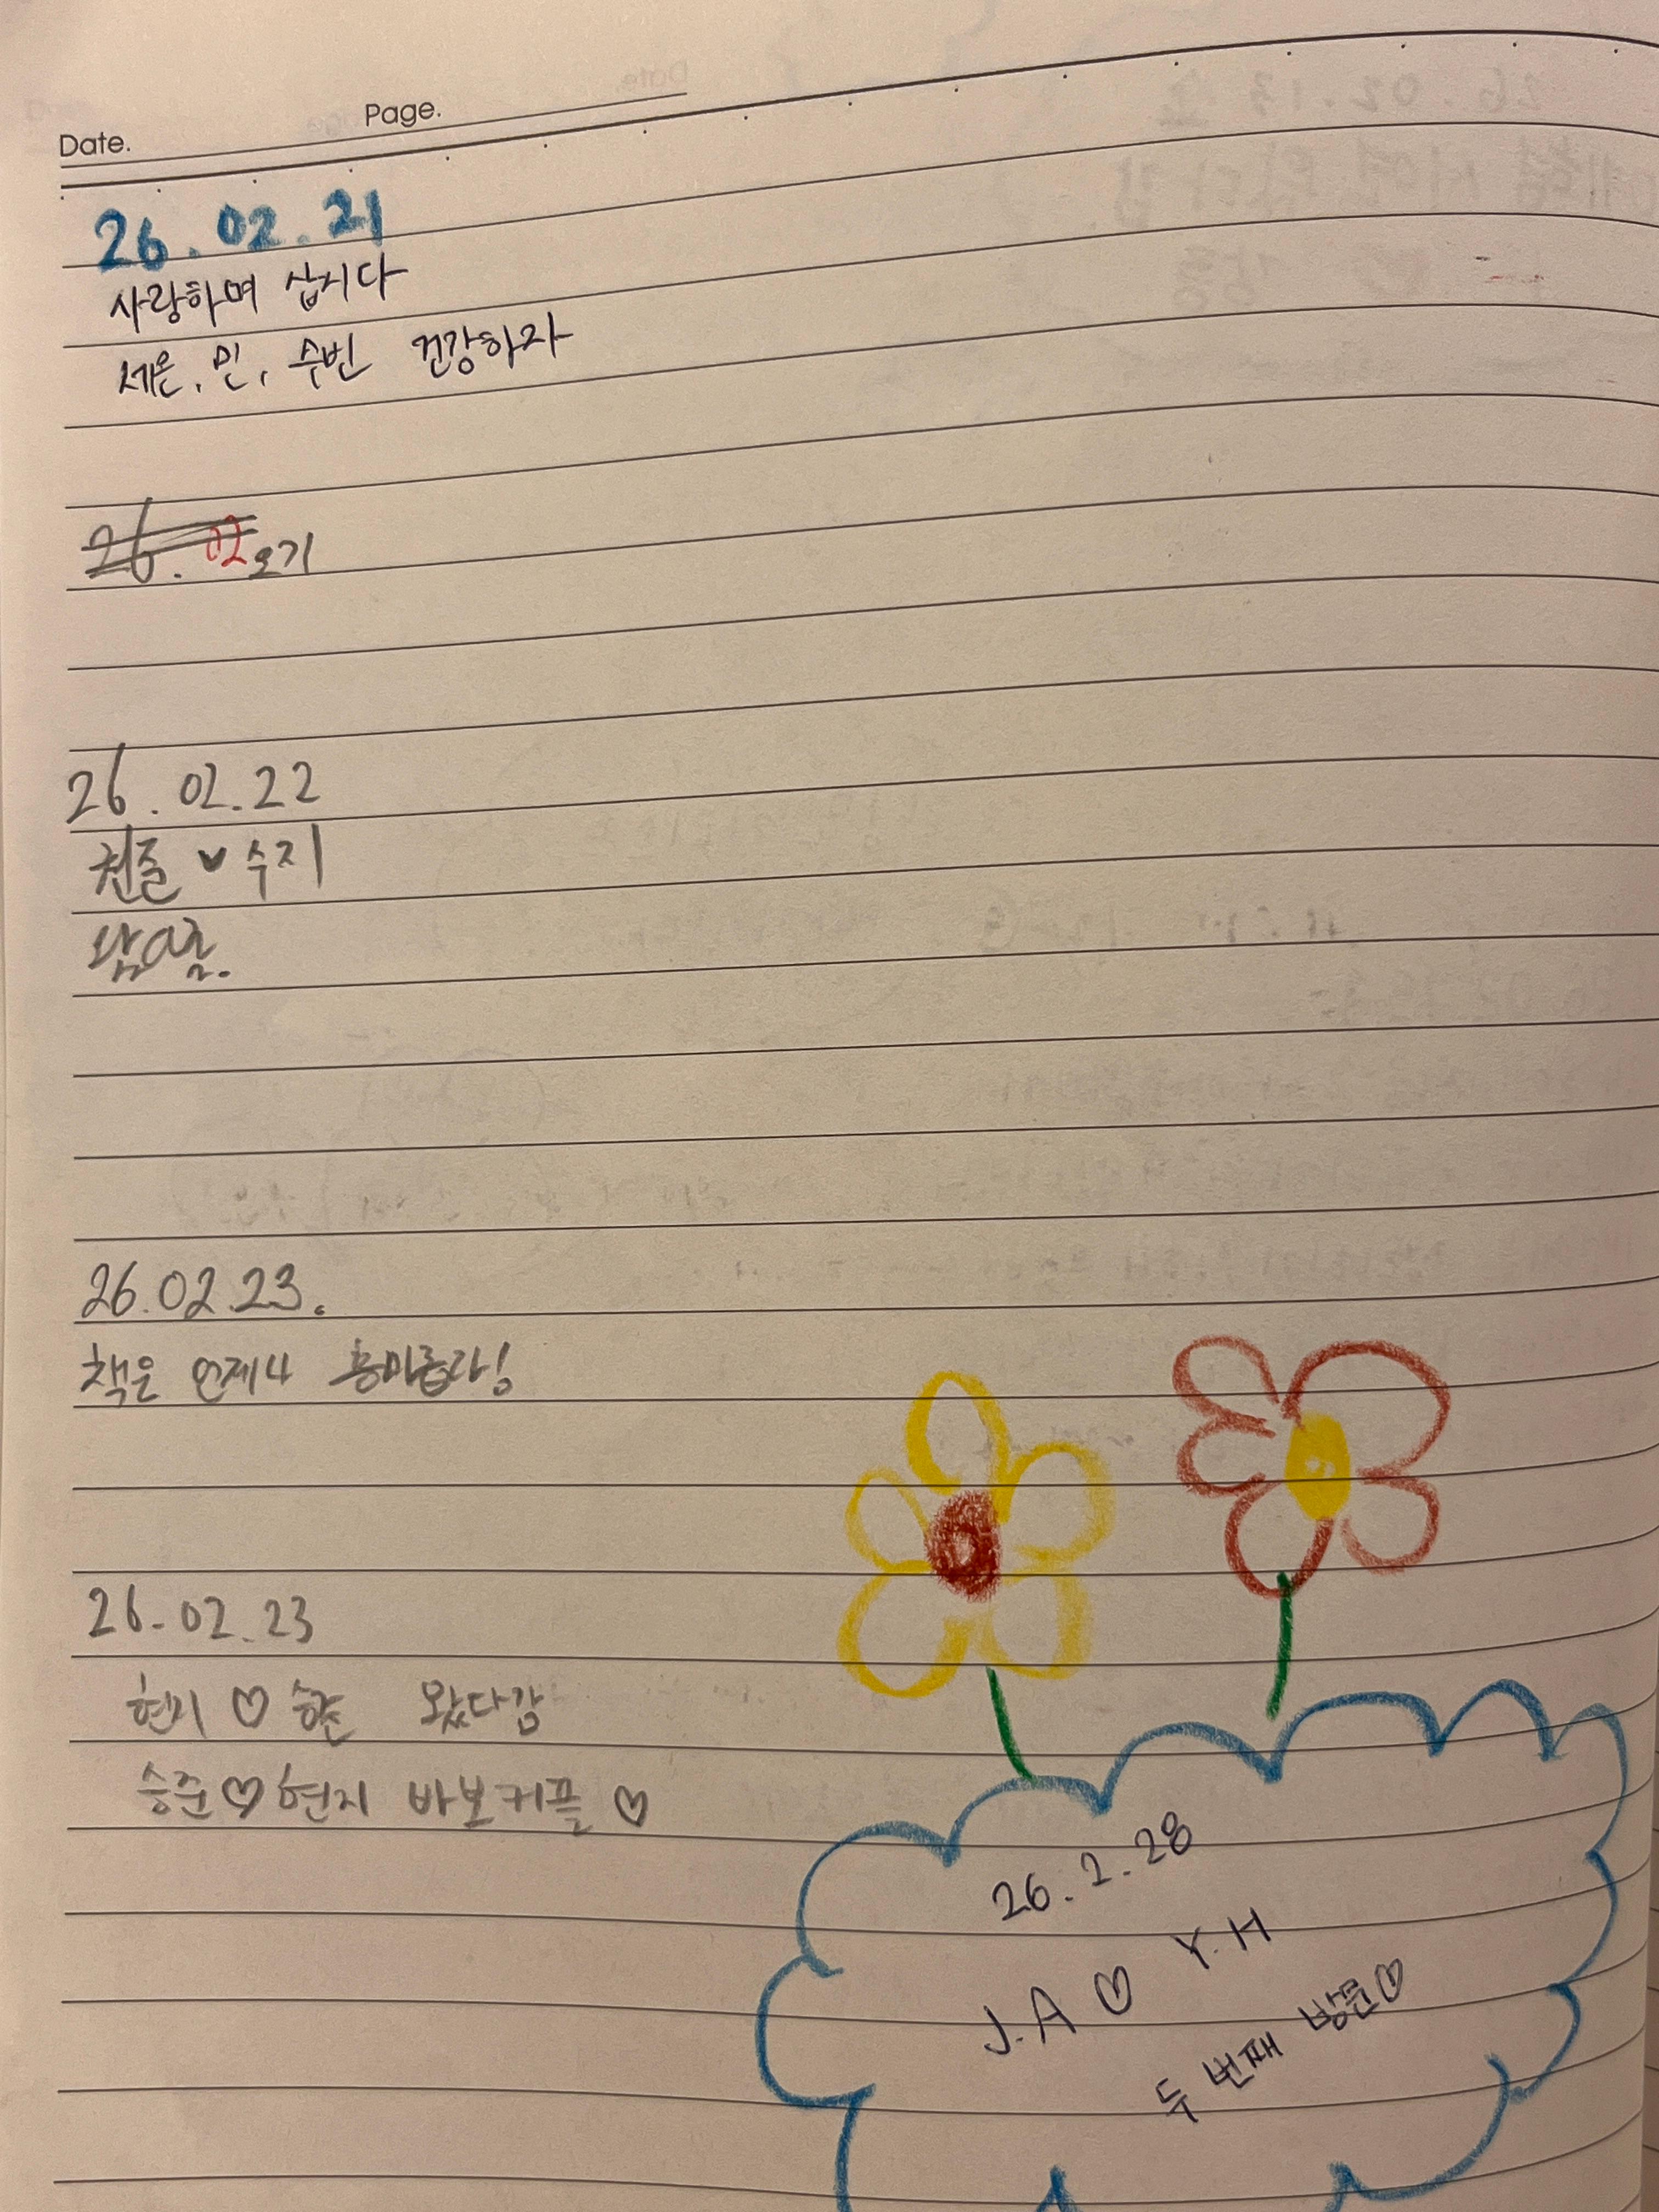 Date.
Page.
26.02.21
사랑하며 삽시다
세은, 민, 수빈 건강하자
26.02 오기
26.02.22
♥ 수지
26.02.23.
책은 언제나 흥미롭다!
26.02.23
현지 ♡ 승준 왔다감
승준 ♡ 현지 바보커플 ♡
26.2.28
J.A ♡ Y.H
두 번째 방문♡